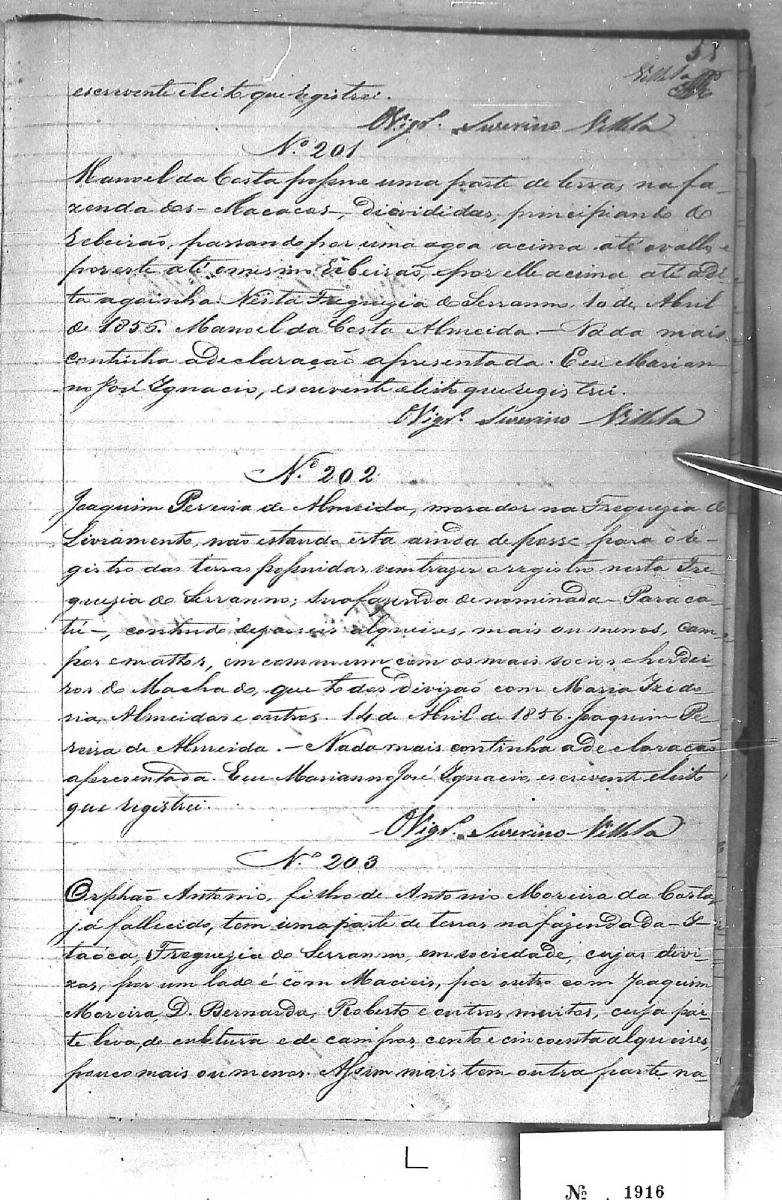 55
Villela
escrevente eleito que registrei.
O Vigrº. Severino Villela
Nº 201
Manoel da Costa possue uma parte de terras, na fa-
zenda dos - Macacos-, dividida, principiando do
Ribeirão, passando por uma agoa acima até o vallo, e
por este até o mesmo Ribeirão, e por elle acima até a di-
ta agoinha. Nesta Freguezia do Serranno, 10 de Abril
de 1856. Manoel da Costa Almeida. - Nada mais
continha a declaração apresentada. E eu Marian-
no José Ignacio, escrevente eleito que registrei.
O Vigrº. Severino Villela
Nº 202
Joaquim Pereira de Almeida, morador na Freguezia do
Livramento, não estando esta ainda de posse para o re-
gistro das terras possuidas, vem trazer o registro nesta Fre-
guezia do Serranno; sua fazenda denominada - Paraca-
tú-, contendo alqueires, mais ou menos, cam-
pos e mattos, em commum com os mais socios e herdei-
ros do Machado, que todos divizão com Maria Izido-
ria, Almeidas e outros. 14 de Abril de 1856. Joaquim Pe-
reira de Almeida. - Nada mais continha a declaração
apresentada. E eu Marianno José Ignacio, escrevente eleito
que registrei.
O Vigrº. Severino Villela
Nº 203
Orphão Antonio, filho de Antonio Moreira da Costa,
já fallecido, tem uma parte de terras na fazenda da - I-
taóca, Freguezia do Serranno, em sociedade, cujas divi-
zas, por um lado é com Macieis, por outro com Joaquim
Moreira D. Bernarda, Roberto e outros muitos, cuja par-
te leva, de cultura e de campos, cento e cincoenta alqueires,
pouco mais ou menos. Assim mais tem outra parte na-
L
Nº 1916